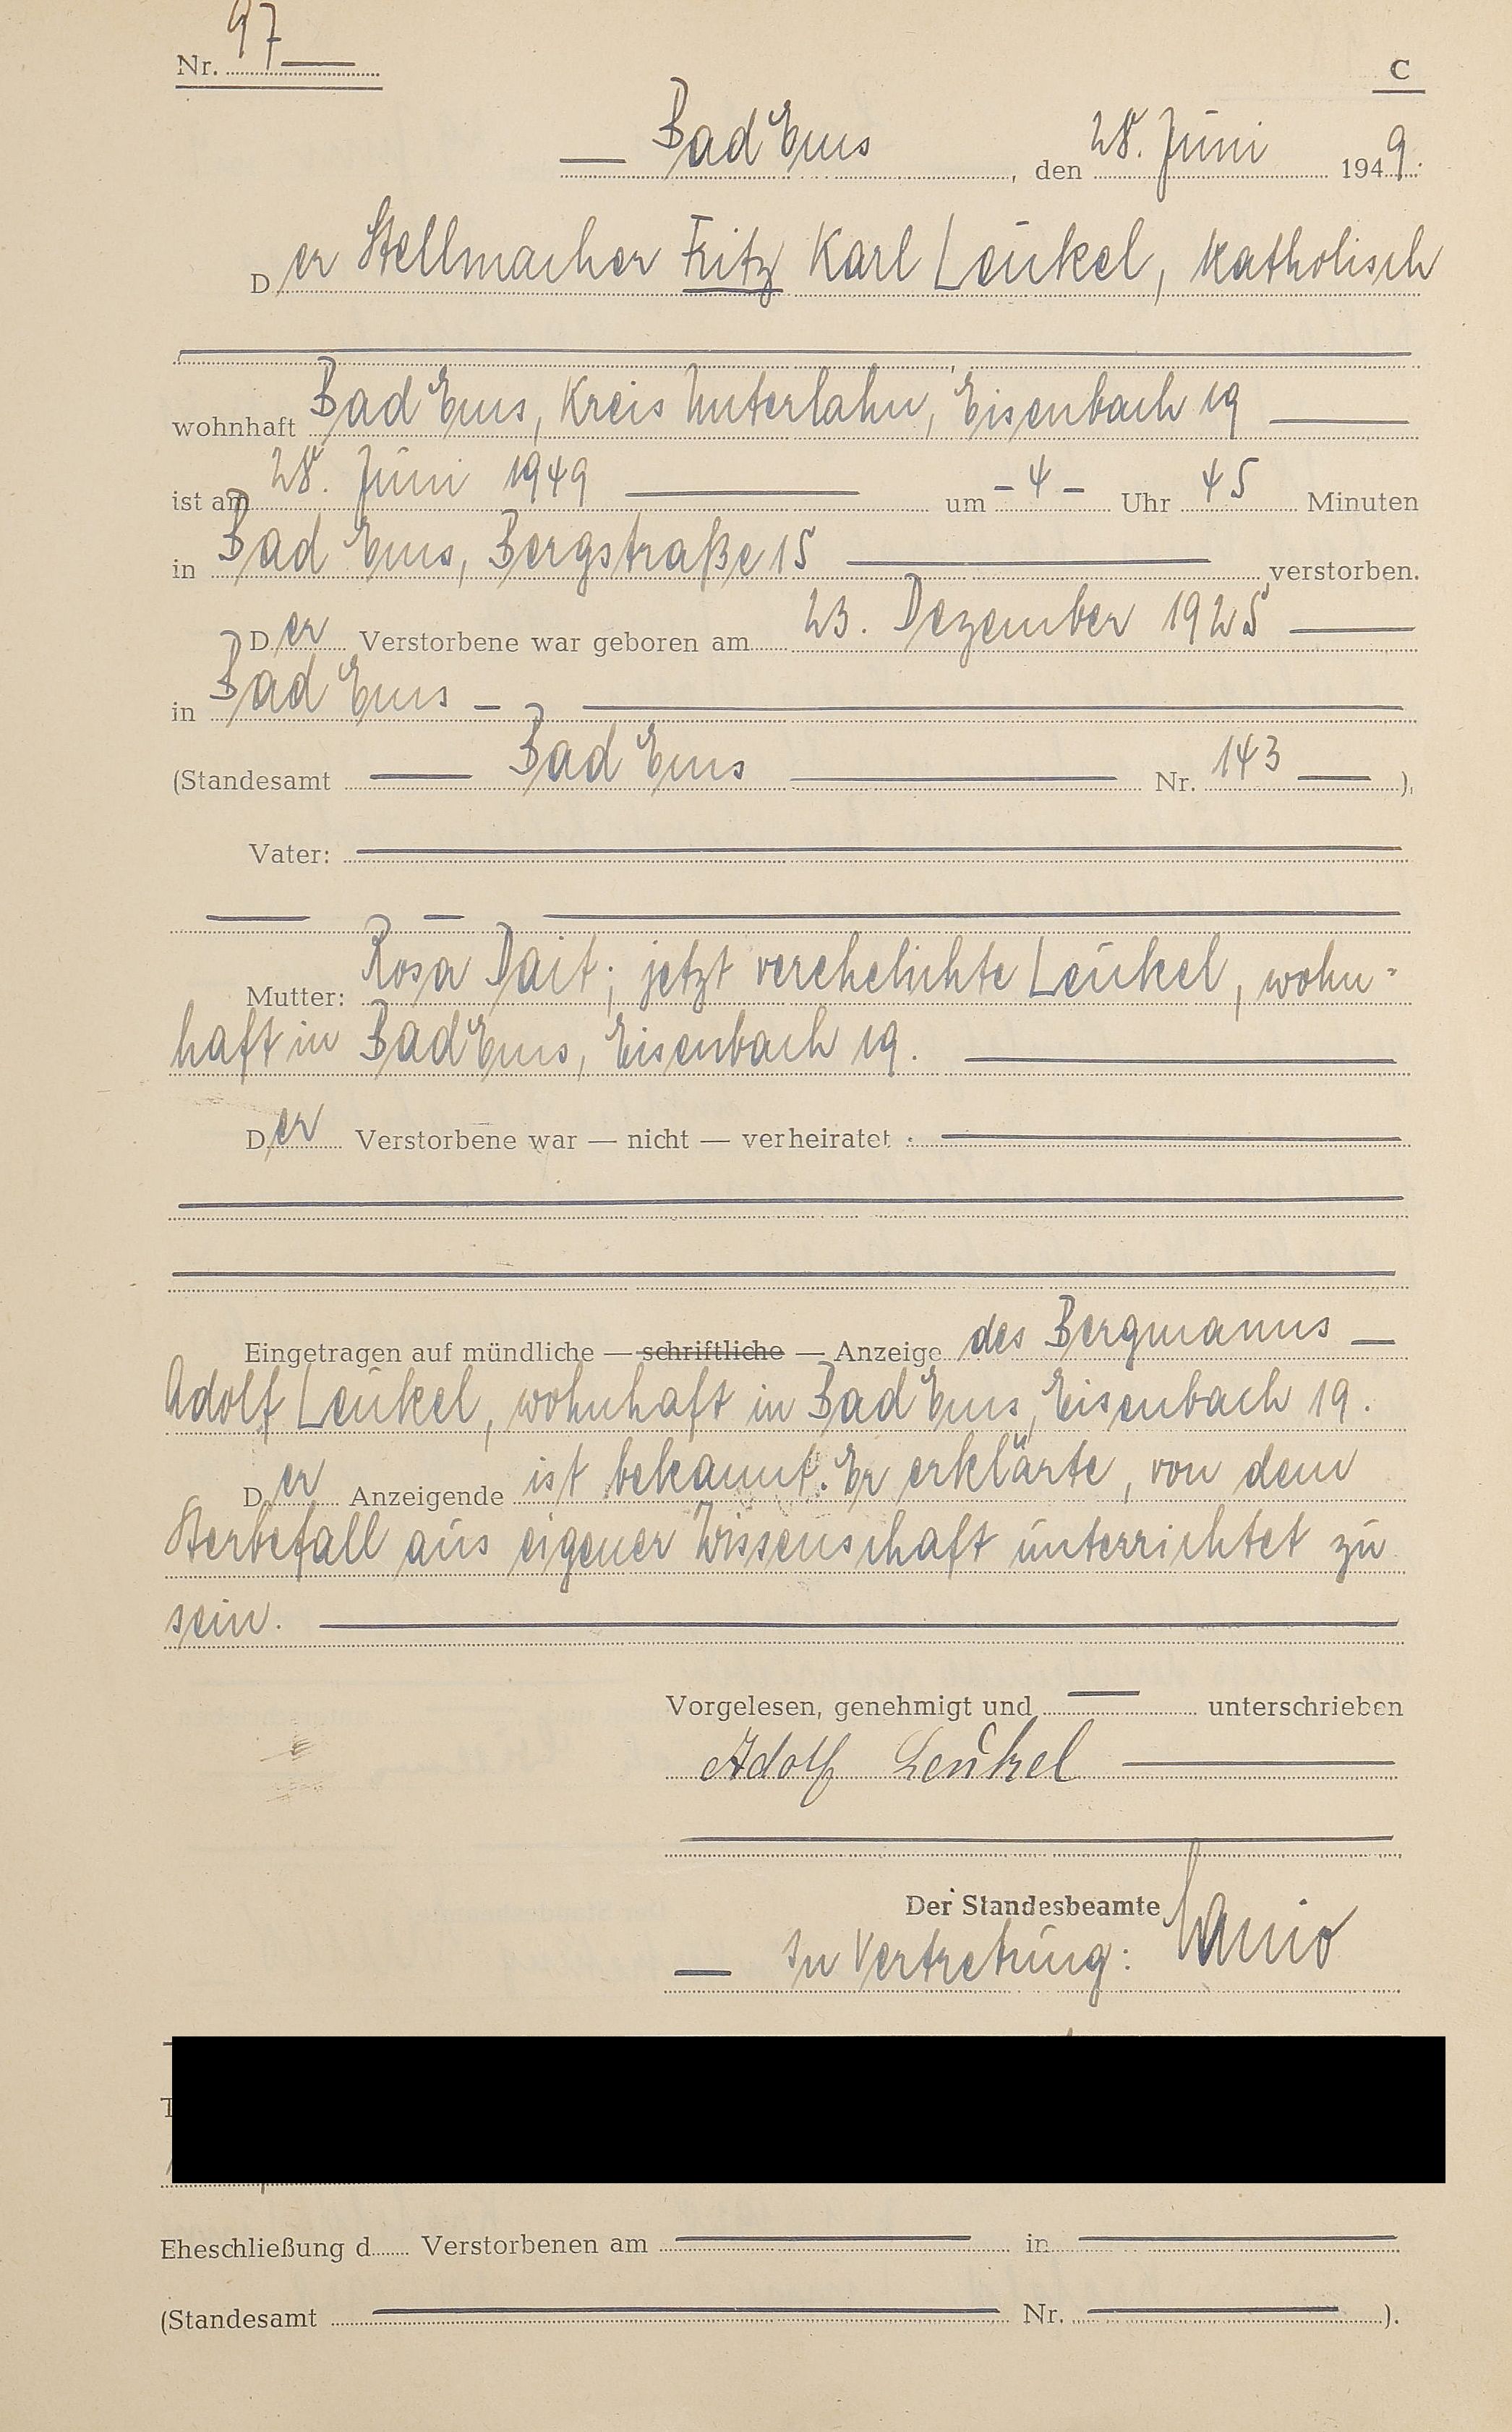 Nr. 97
C
Bad Ems, den 28. Juni 1949.
Der Stellmacher Fritz Karl Leukel, katholisch
wohnhaft Bad Ems, Kreis Unterlahn, Eisenbach 19
ist am 28. Juni 1949 um - 4 - Uhr 45 Minuten
in Bad Ems, Bergstraße 15 verstorben.
Der Verstorbene war geboren am 23. Dezember 1925
in Bad Ems -
(Standesamt Bad Ems Nr. 143 ).
Vater:
Mutter: Rosa Dait; jetzt verehelichte Leukel, wohn-
haft in Bad Ems, Eisenbach 19.
Der Verstorbene war — nicht — verheiratet.
Eingetragen auf mündliche — schriftliche — Anzeige des Bergmanns
Adolf Leukel, wohnhaft in Bad Ems, Eisenbach 19.
Der Anzeigende ist bekannt. Er erklärte, von dem
Sterbefall aus eigener Wissenschaft unterrichtet zu
sein.
Vorgelesen, genehmigt und unterschrieben
Adolf Leukel
Der Standesbeamte
In Vertretung:
Eheschließung d Verstorbenen am in
(Standesamt Nr. ).